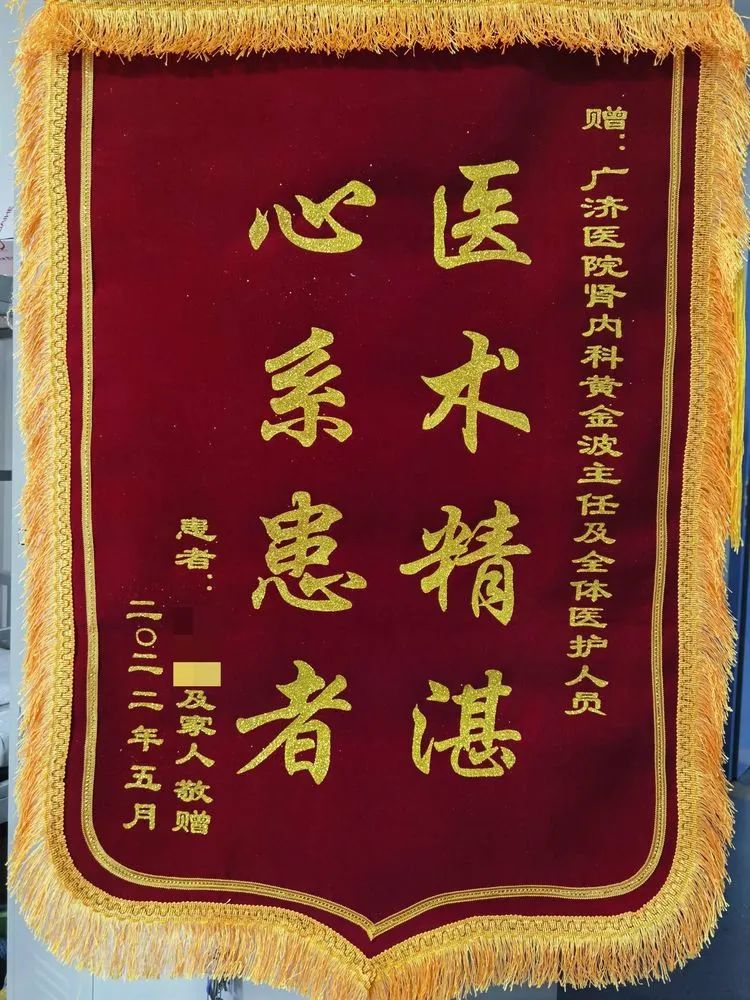 赠：广济医院肾内科黄金波主任及全体医护人员
医术精湛
心系患者
患者：
及家人敬赠
二〇二二年五月